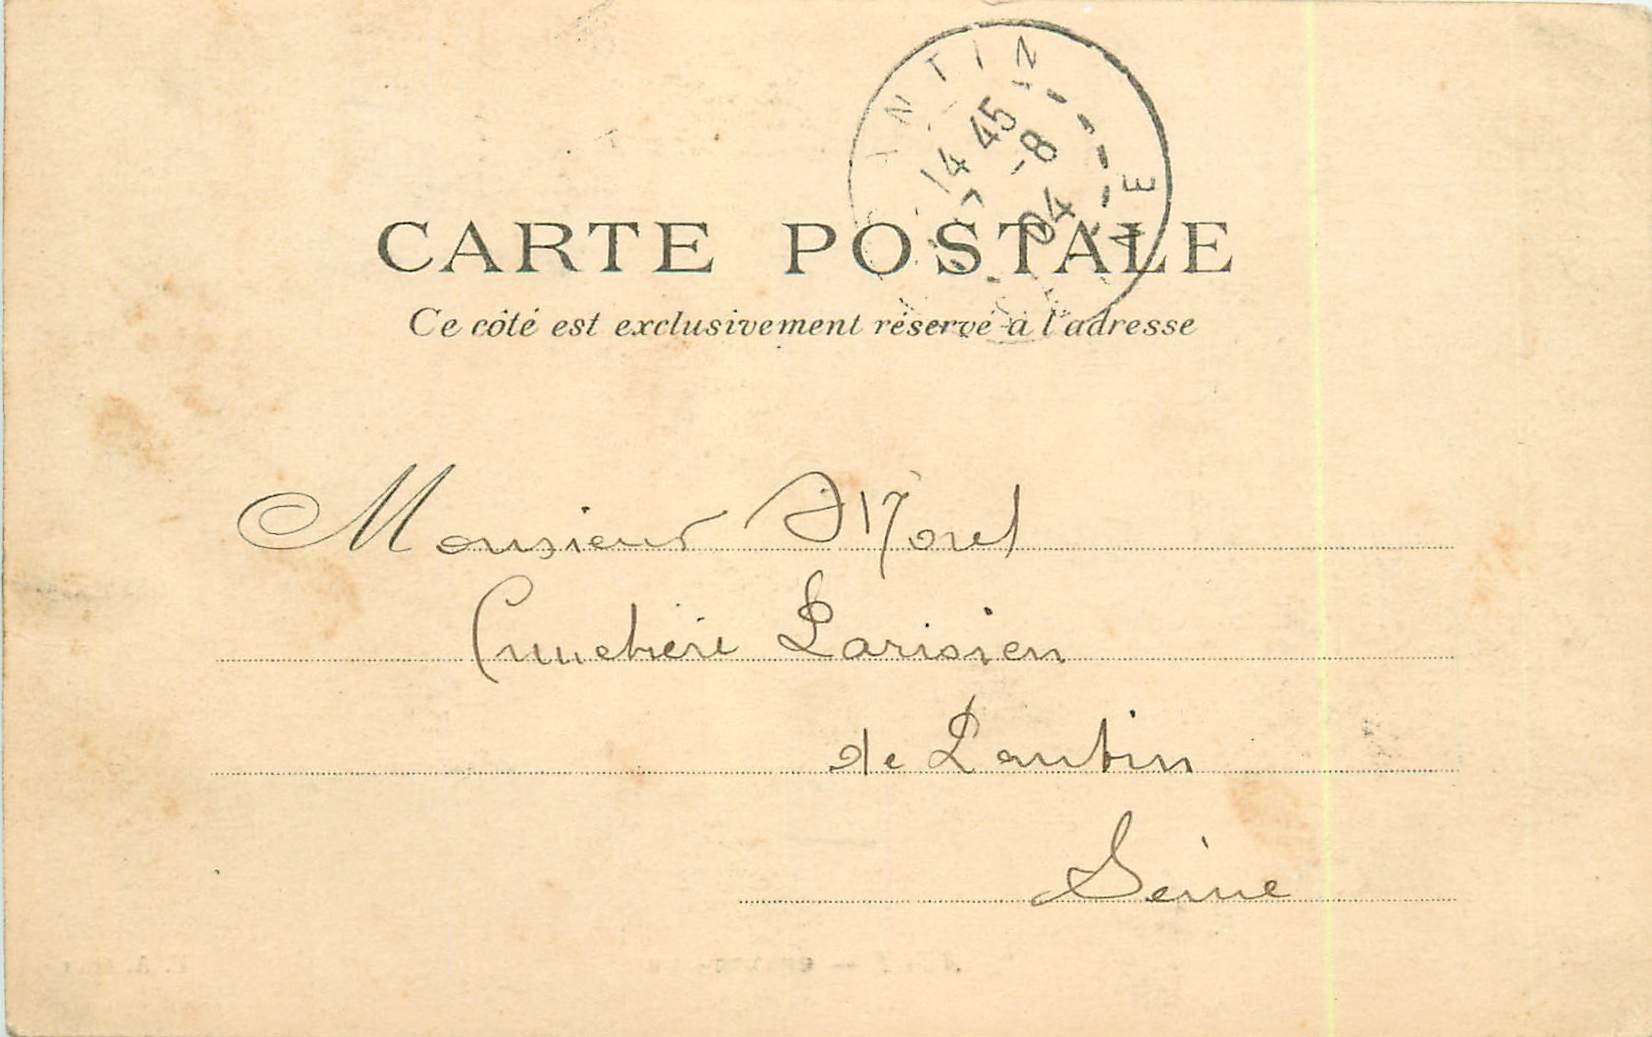 ANTIN
14 45
7 -8
04
SEINE
CARTE POSTALE
Ce côté est exclusivement réservé à l'adresse
Monsieur Morel
Cimetière Parisien
de Pantin
Seine